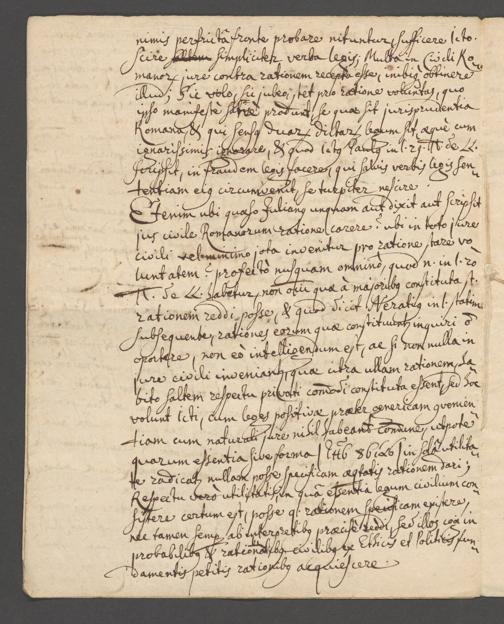 nimis perfrictâ fronte probare nituntur, sufficere Icto
scire simpliciter verba legis; Multa in Civili Ro
manor. jure contra rationem recepta esse, inibiq. obtinere
illud: Sic volo, sic jubeo, stet pro ratione voluntas, quo
ipso manifestè produnt se quae sit jurisprudentia
Romana & qui sensq duar. dictar. legum sit, aequè cum
ignarissimis ignorare, & quod Ictq Paulq in l. 29. ff. de LL.
scripsit, in fraudem legis facere, qui salvis verbis legis sen
tentiam ejq circumvenit, se turpiter nescire.
Etenim ubi quaeso Julianq unquam aut dixit aut scripsit
jus civile Romanorum ratione carere? ubi in toto jure
civili vel minimo jota invenitur pro ratione stare vo
luntatem? profectò nusquam omninò, quod n. in l. 20
ff. de LL. habetur, non oium quae à majoribq constituta st.
rationem reddi posse, & quod dicit Neratiq in l. statim
subsequente, rationes eorum quae constituuntur, inquiri ō
oportere, non eo intelligendum est, ac si non nulla in
jure civili inveniantur, quae citra ullam rationem,
bito saltem respectu privati comodi constituta essent, sed hoc
volunt Icti, cum leges positivae praeter genericam convenien
tiam cum naturali jure nihil habeant commune, utpote
quarum essentia sive forma in solâ utilita
te radicat, nullam posse specificam aeqtatis rationem dari;
Respectu verò utilitatis, in quâ essentia legum civilium con
sistere certum est, posse qd. rationem specificam existere,
nec tamen semp. ab interpretibq praecisè reddi, sed illos in
probabilibq & rationibq civilibq ex Ethicis et Politicis fun
damentis petitis rationibq acquiescere.